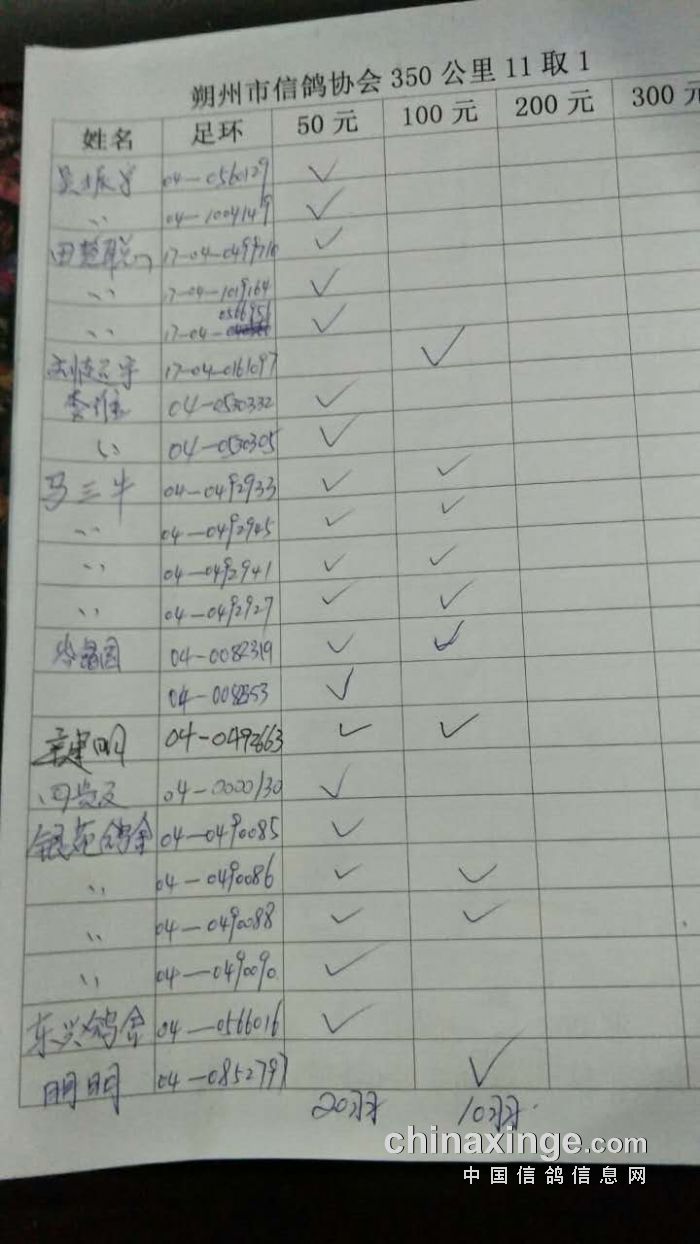 朔州市信鸽协会 350 公里 11 取 1
姓名 足环 50 元 100 元 200 元 300 元
04-0560129 ✓
〃 04-1004149 ✓
田 17-04-
〃 17-04-1019164 ✓
〃 17-04-0566956 ✓
17-04-0161097 ✓
李 04-0530332 ✓
〃 04-0530305 ✓
马三牛 04-0492933 ✓ ✓
〃 04-0492945 ✓ ✓
〃 04-0492941 ✓ ✓
〃 04-0492927 ✓ ✓
04-0082319 ✓ ✓
✓
明 04-0492663 ✓ ✓
04-0000130 ✓
银苑鸽舍 04-0490085 ✓
〃 04-0490086 ✓ ✓
〃 04-0490088 ✓ ✓
〃 04-049090 ✓
东兴鸽舍 04-0566016 ✓
明明 04-0852797 ✓
20羽 10羽
chinaxinge.com
中国信鸽信息网